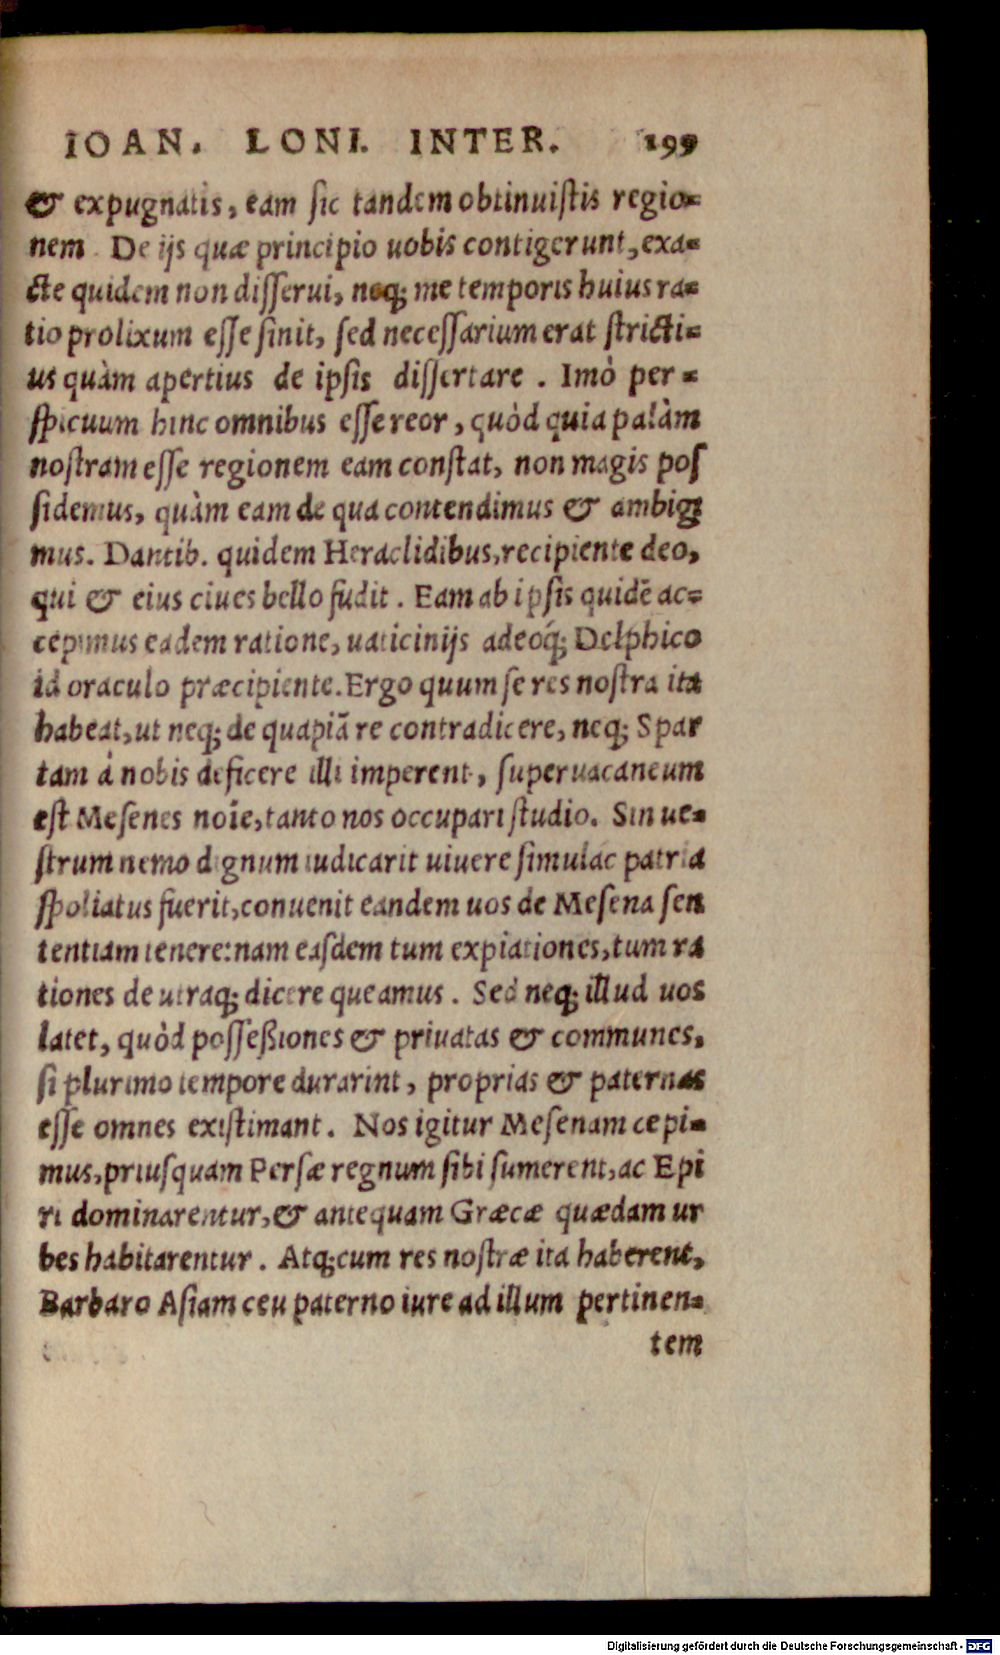 IOAN. LONI. INTER. 199
& expugnatis, eam ſic tandem obtinuiſtis regio-
nem. De ijs quæ principio uobis contigerunt, exa-
cte quidem non diſſerui, neq; me temporis huius ra-
tio prolixum eſſe ſinit, ſed neceſſarium erat ſtricti-
us quàm apertius de ipſis diſſertare. Imò per-
ſpicuum hinc omnibus eſſe reor, quòd quia palàm
noſtram eſſe regionem eam conſtat, non magis poſ
ſidemus, quàm eam de qua contendimus & ambigi
mus. Dantib. quidem Heraclidibus, recipiente deo,
qui & eius ciues bello fudit. Eam ab ipſis quidē ac-
cepimus eadem ratione, uaticinijs adeoq́; Delphico
id oraculo præcipiente. Ergo quum ſe res noſtra ita
habeat, ut neq; de quapiā re contradicere, neq; Spar
tam à nobis deficere illi imperent, ſuperuacaneum
eſt Meſenes noīe, tanto nos occupari ſtudio. Sin ue-
ſtrum nemo dignum iudicarit uiuere ſimulac patria
ſpoliatus fuerit, conuenit eandem uos de Meſena ſen
tentiam tenere: nam eaſdem tum expiationes, tum ra
tiones de utraq; dicere queamus. Sed neq; illud uos
latet, quòd poſſeßiones & priuatas & communes,
ſi plurimo tempore durarint, proprias & paternas
eſſe omnes exiſtimant. Nos igitur Meſenam cepi-
mus, priuſquam Perſæ regnum ſibi ſumerent, ac Epi
ri dominarentur, & antequam Græcæ quædam ur
bes habitarentur. Atq; cum res noſtræ ita haberent,
Barbaro Aſiam ceu paterno iure ad illum pertinen-
tem
Digitalisierung gefördert durch die Deutsche Forschungsgemeinschaft - DFG